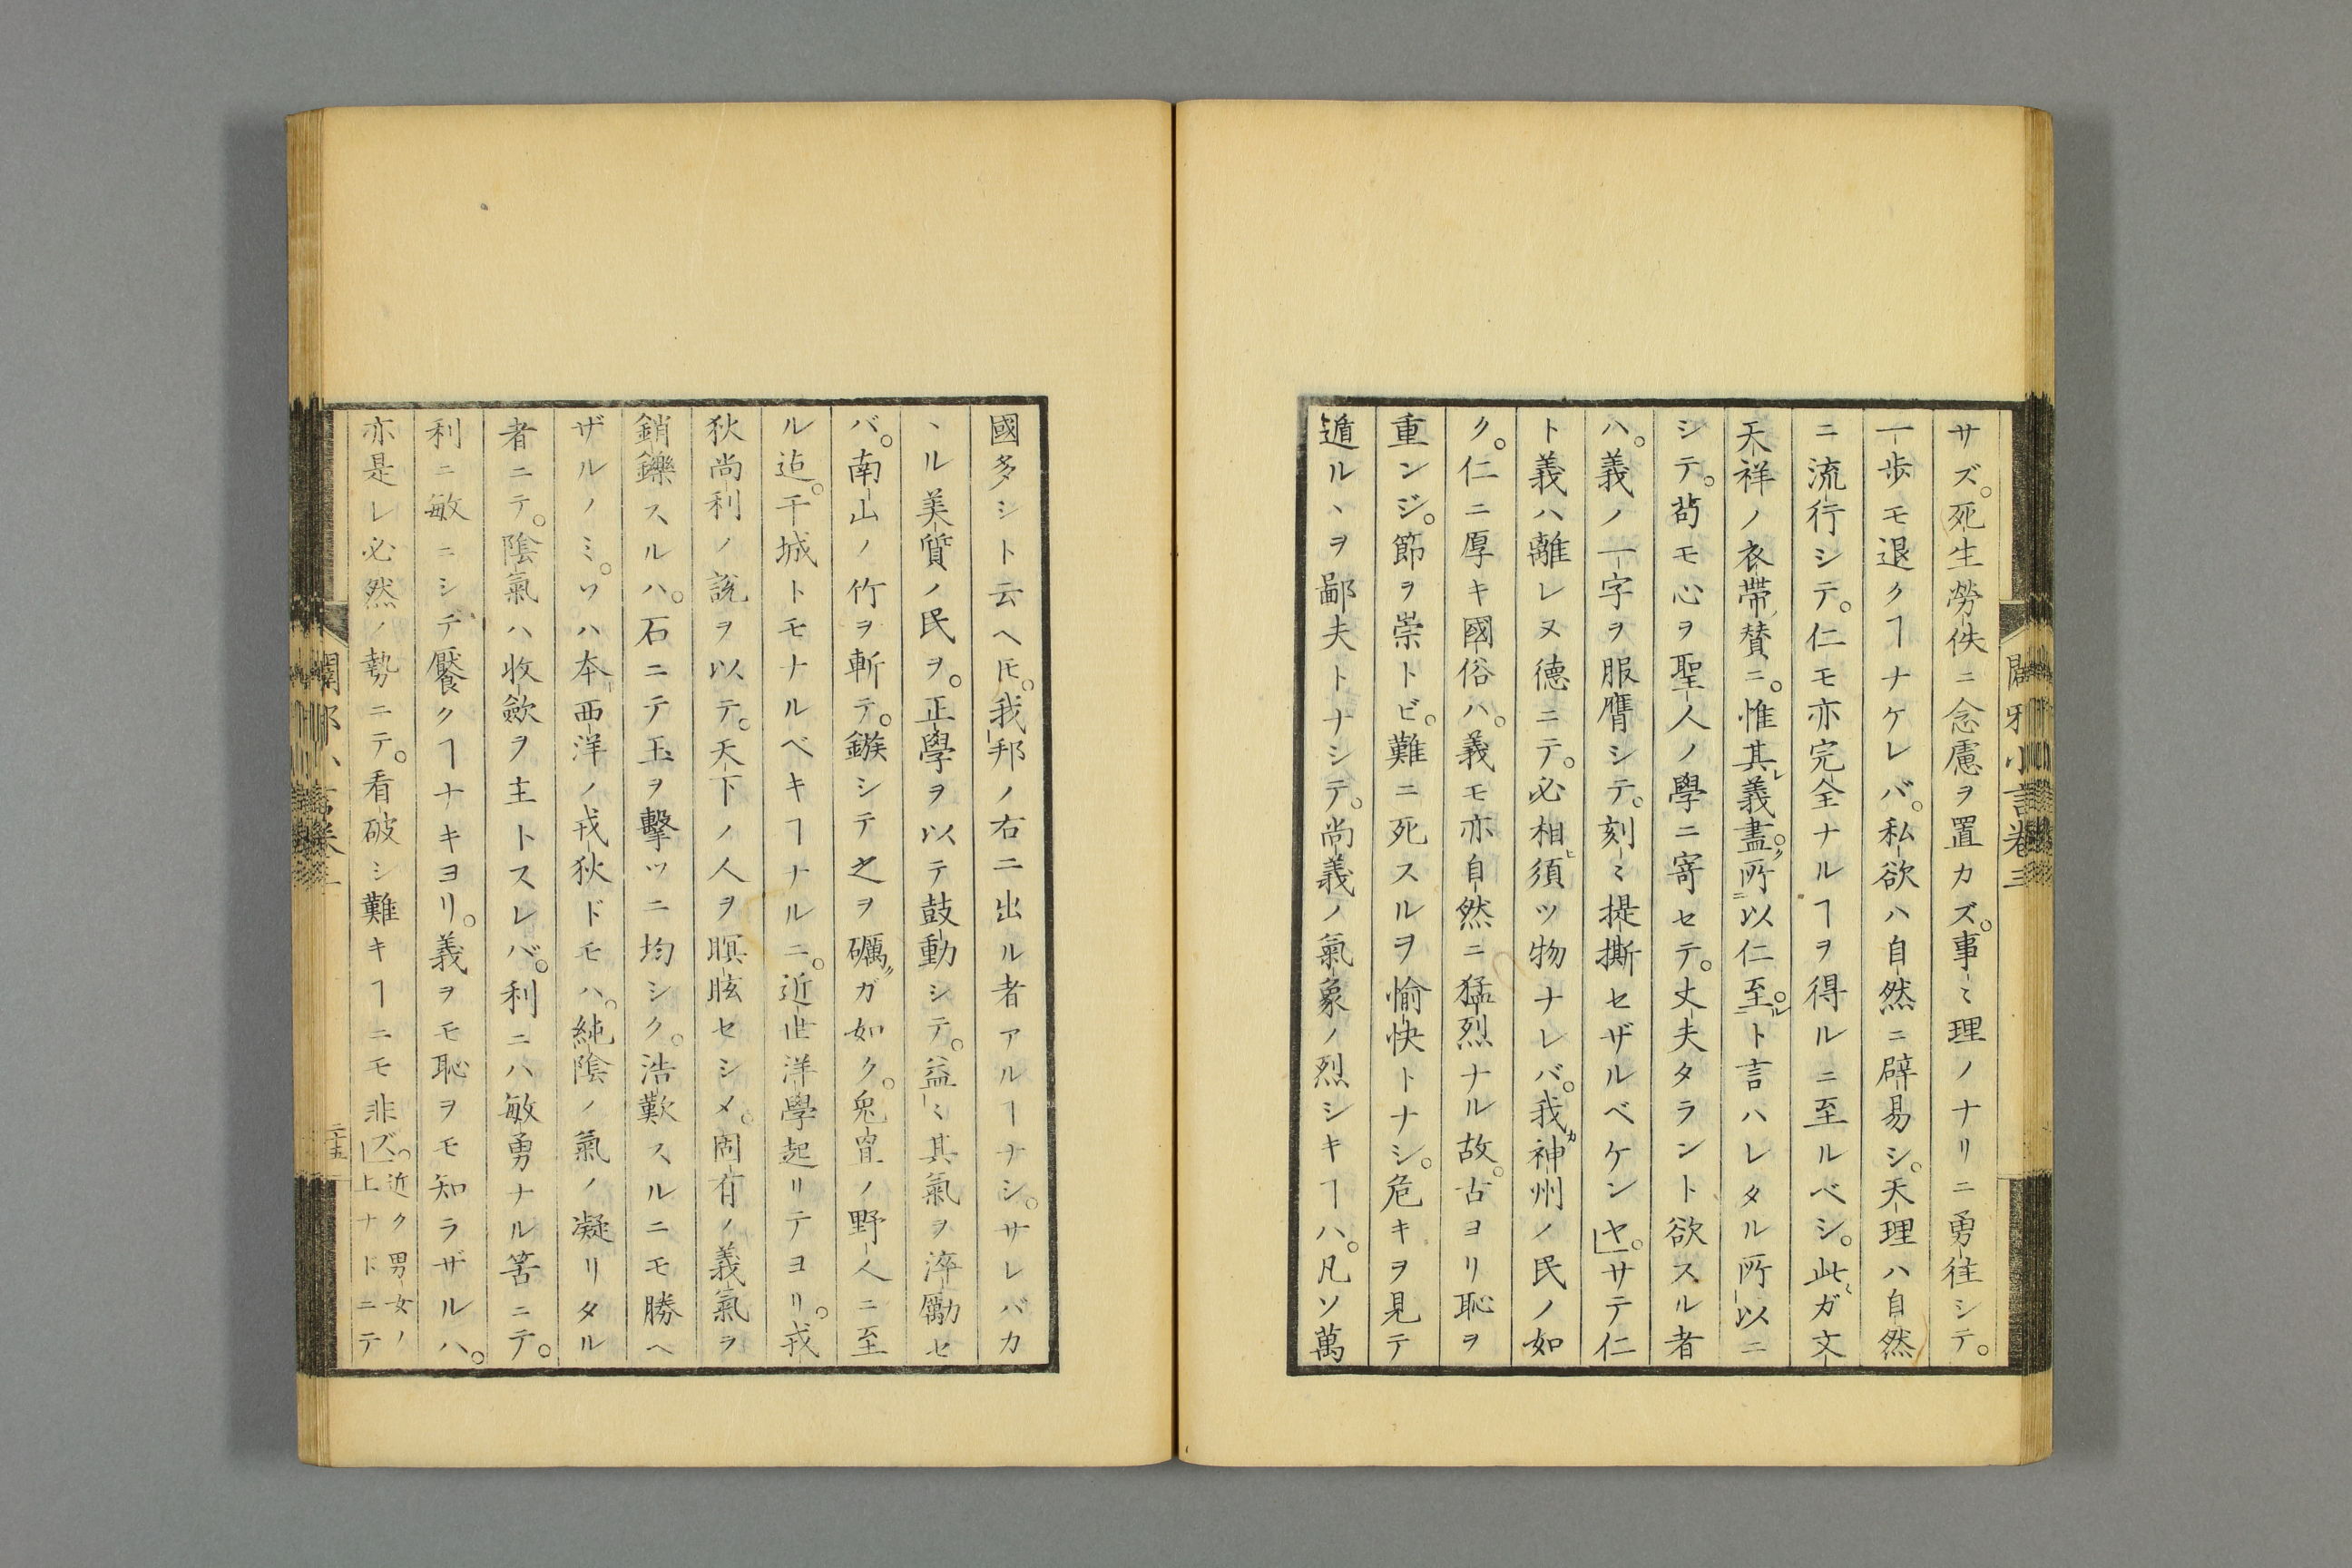 サズ。死生勞佚ニ念慮ヲ置カズ。事〻理ノナリニ勇往シテ。
一歩モ退クヿナケレバ。私欲ハ自然ニ辟易シ。天理ハ自然
ニ流行シテ。仁モ亦完全ナルヿヲ得ルニ至ルベシ。此〻ガ文
天祥ノ衣帶ノ賛ニ。惟其レ義盡ク。所ニ以仁至ル。ト言ハレタル所以ニ
シテ。苟モ心ヲ聖人ノ學ニ寄セテ。丈夫タラント欲スル者
ハ。義ノ一字ヲ服膺シテ。刻〻提撕セザルベケンヤ。」サテ仁
ト義ハ離レヌ德ニテ。必相ヒ須ツ物ナレバ。我カ神州ノ民ノ如
ク。仁ニ厚キ國俗ハ。義モ亦自然ニ猛烈ナル故。古ヨリ恥ヲ
重ンジ。節ヲ崇トビ。難ニ死スルヲ愉快トナシ。危キヲ見テ
遁ルヽヲ鄙夫トナシテ。尚義ノ氣象ノ烈シキヿハ。凡ソ萬
國多シト云ヘ𪜈。我邦ノ右ニ出ル者アルヿナシ。サレバカ
ヽル美質ノ民ヲ。正學ヲ以テ鼓動シテ。益〻其氣ヲ淬勵セ
バ。南山ノ竹ヲ斬テ。鏃シテ之ヲ礪グガ如ク。兔罝ノ野人ニ至
ル迠。干城トモナルベキヿナルニ。近世洋學起リテヨリ。戎
狄尚利ノ説ヲ以テ。天下ノ人ヲ瞑眩セシメ。固有ノ義氣ヲ
銷鑠スルハ。石ニテ玉ヲ擊ツニ均シク。浩歎スルニモ勝ヘ
ザルノミ。ソハ本西洋ノ戎狄ドモハ。純陰ノ氣ノ凝リタル
者ニテ。陰氣ハ收斂ヲ主トスレバ。利ニハ敏勇ナル筈ニテ。
利ニ敏ニシテ饜クヿナキヨリ。義ヲモ恥ヲモ知ラザルハ。
亦是レ必然ノ勢ニテ。看破シ難キヿニモ非ズ。」近ク男女ノ
上ナドニテ
闢邪小言卷三
二十五